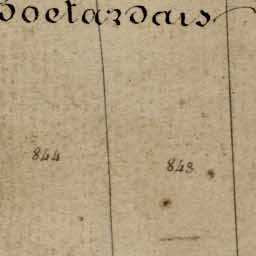 Boetardais
844
843